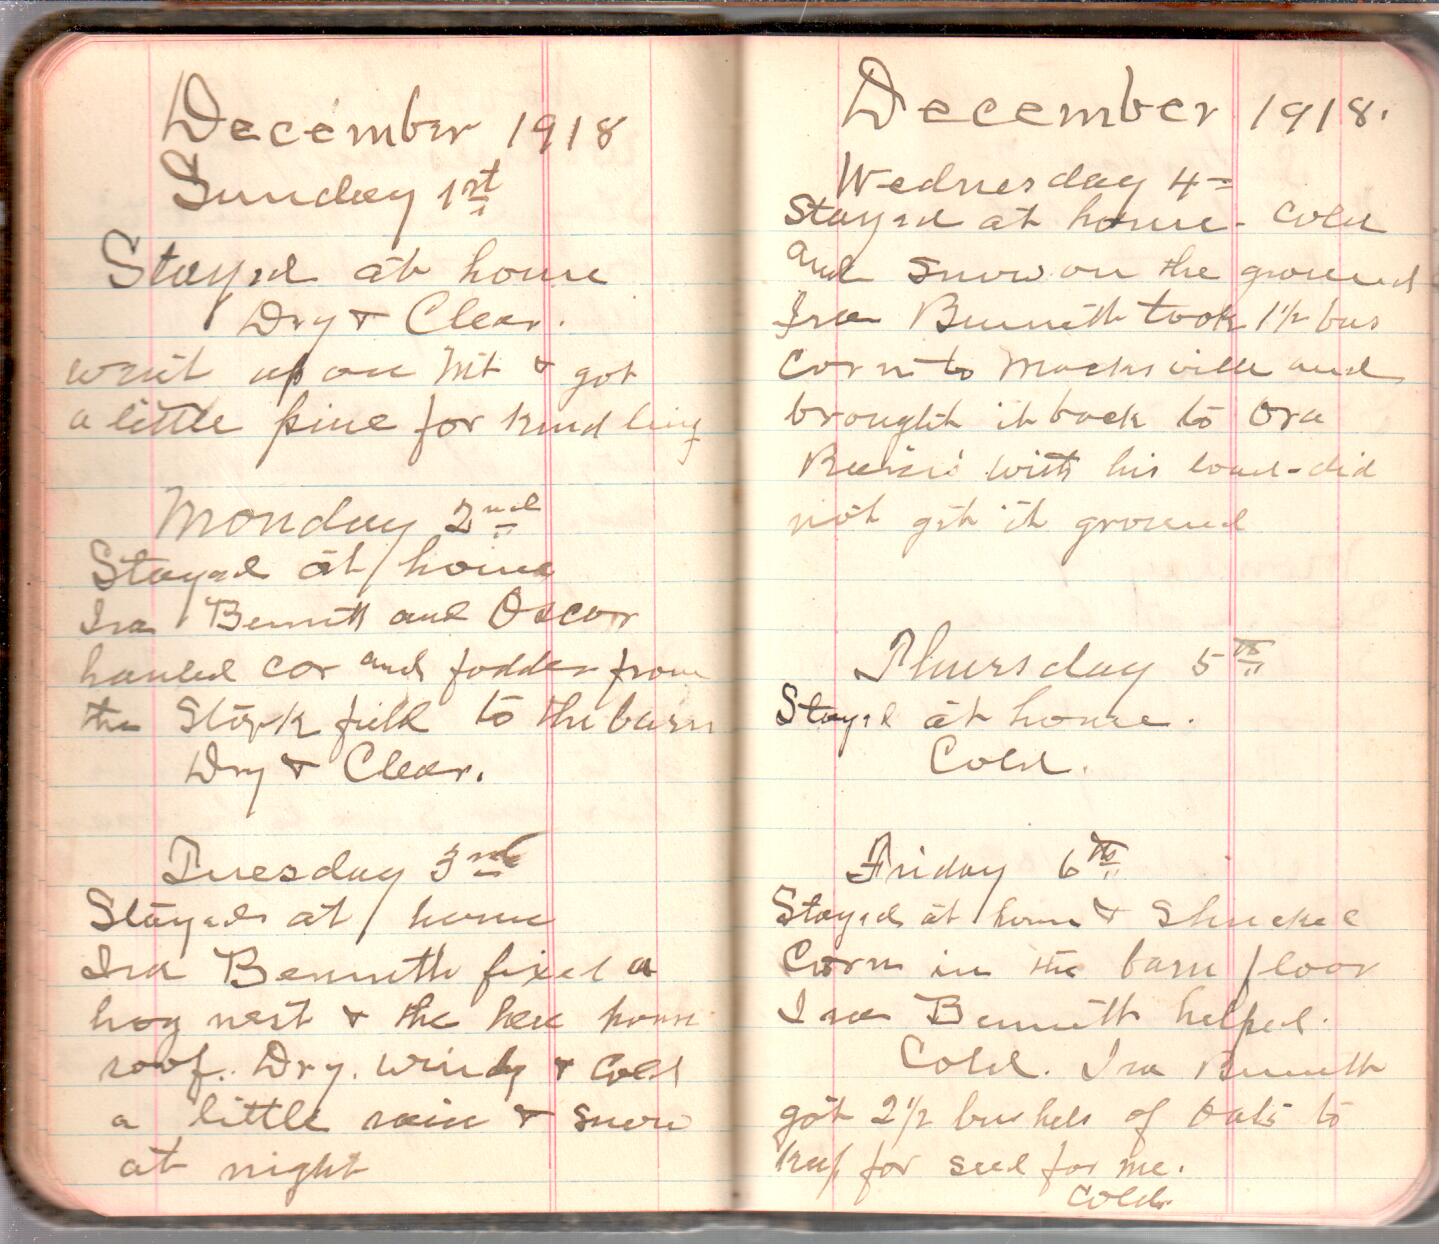 December 1918
Sunday 1st
Stayed at home
Dry & Clear.
went up on Mt & got
a little pine for kindling
Monday 2nd
Stayed at home
Ira Bennett and Oscar
hauled cor and fodder from
the field to the barn
Dry & Clear.
Tuesday 3rd
Stayed at home
Ira Bennett fixed a
hog nest & the hen house
roof. Dry. Windy & Cold
a little rain & snow
at night
December 1918.
Wednesday 4
Stayed at home. Cold
and snow on the ground
Ira Bennett took 1½ bus
Corn to Macksville and
brought it back to Ora
with his load - did
not git it ground
Thursday 5th
Stayed at home.
Cold.
Friday 6th
Stayed at home & Shucked
Corn in the barn floor
Ira Bennett helped.
Cold. Ira Bennett
got 2½ bushels of Oats to
keep for seed for me.
Cold.